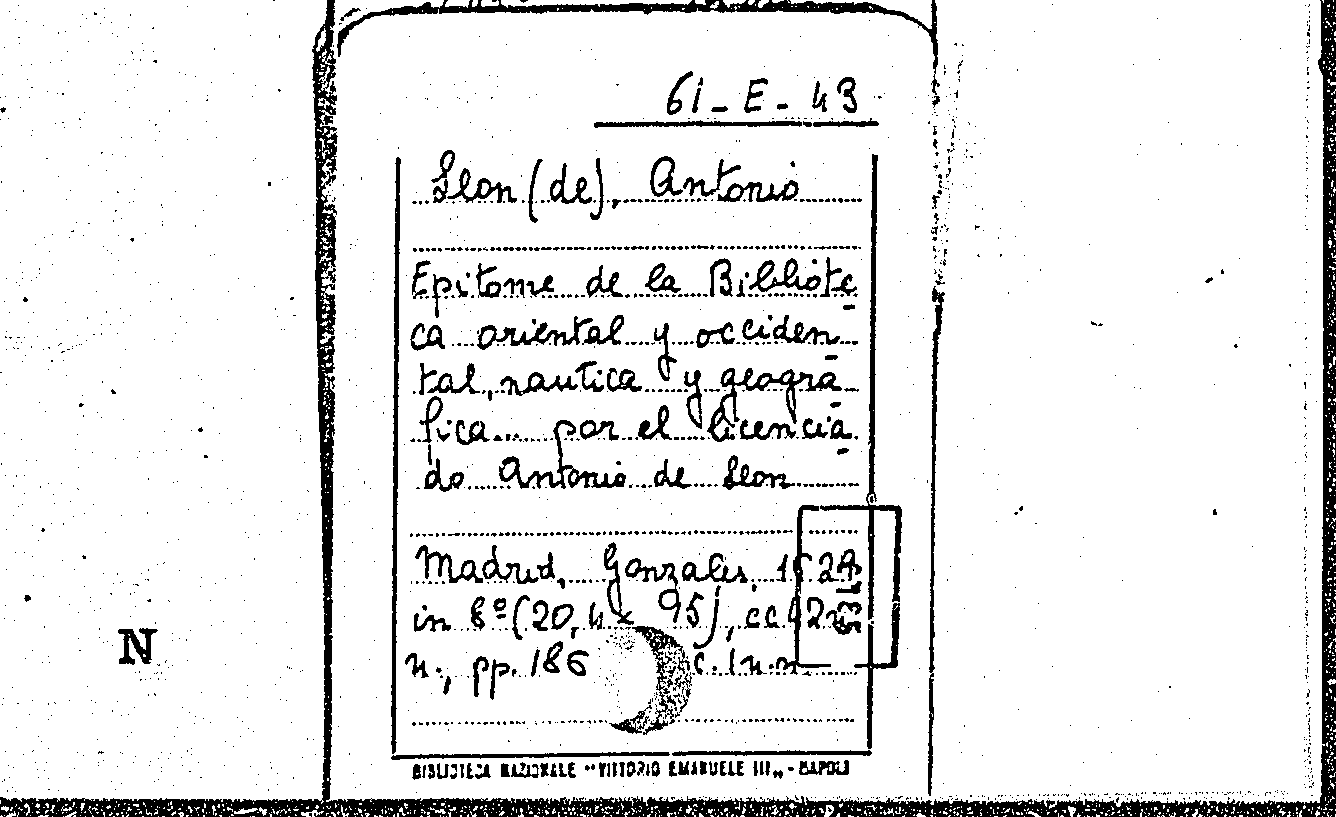 61-E-43
Leon (de), Antonio
Epitome de la Bibliote
ca oriental y occiden
tal, nautica y geogra
fica... por el licencia
do Antonio de Leon
Madrid, Gonzales,
in 8º (20,4 x 95), cc
n., pp. 186 c. 1 n.n.
BIBLIOTECA NAZIONALE "VITTORIO EMANUELE III„ - NAPOLI
N